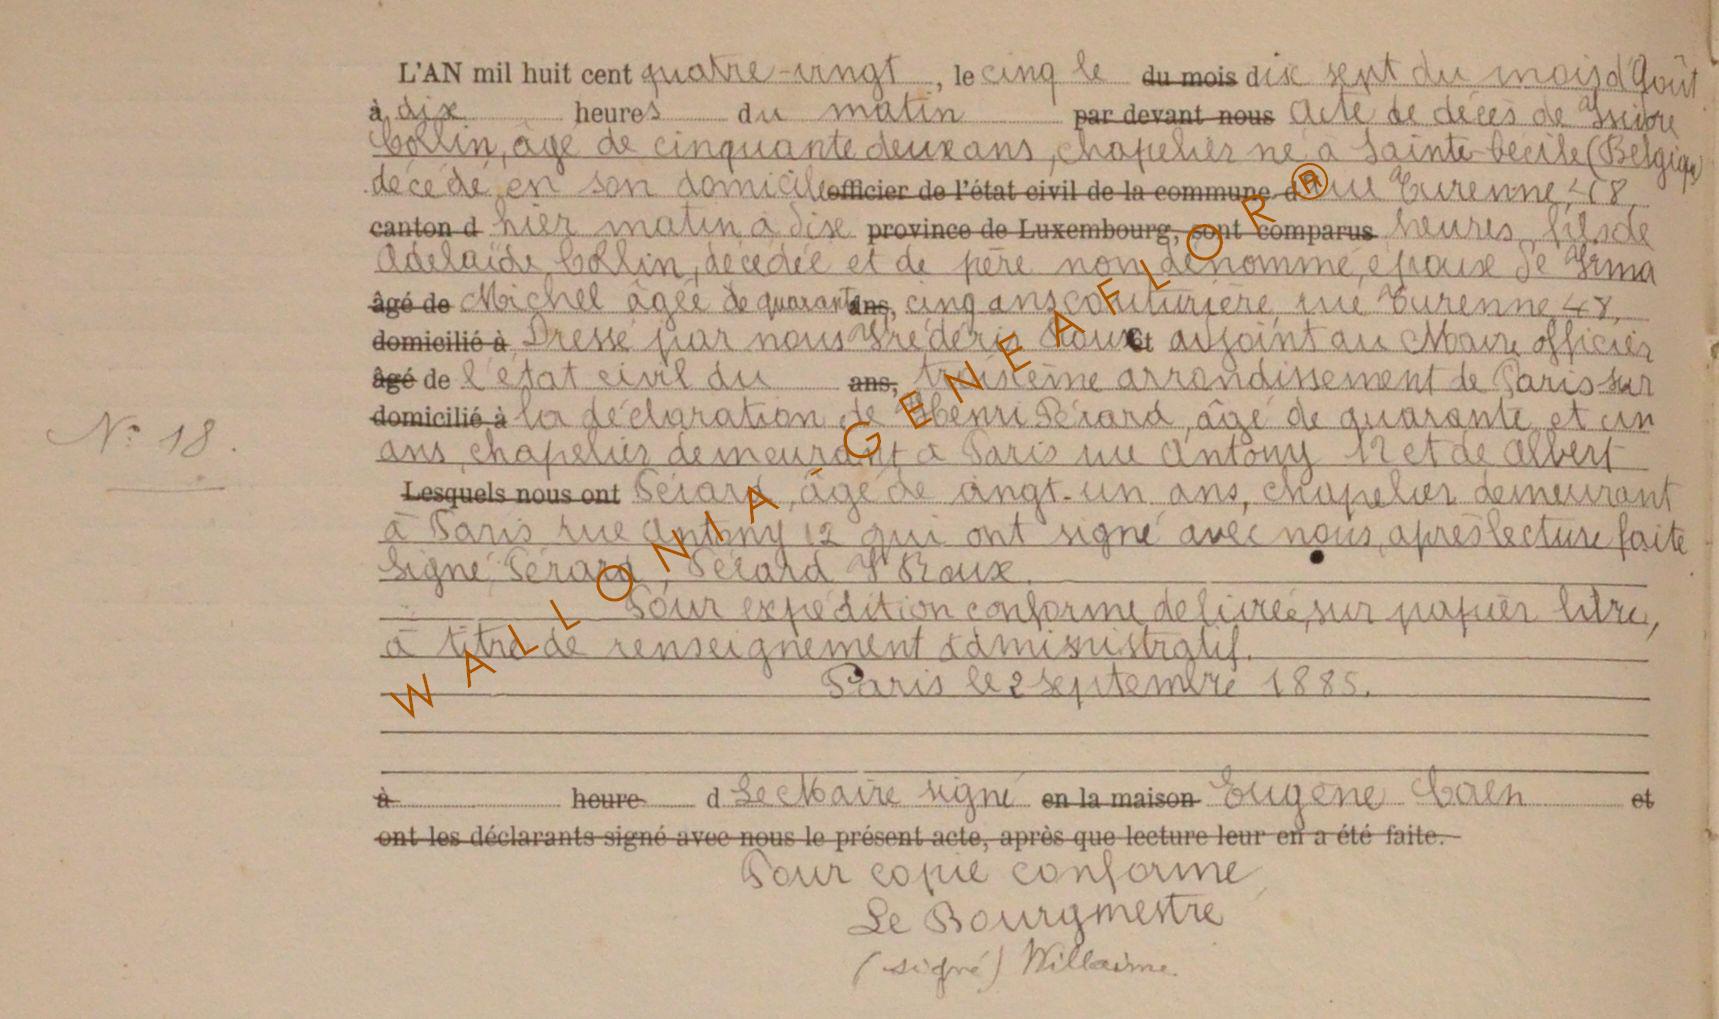 L'AN mil huit cent quatre-vingt, le cinq le du mois dix sept du mois d'Août
à dix heures du matin par devant nous Acte de décès de Isidore
Collin, âgé de cinquante deux ans, chapelier né à Sainte-Cécile (Belgique)
décédé en son domicile officier de l'état civil de la commune d rue Turenne, 48,
canton d hier matin à dix province de Luxembourg, sont comparus heures, fils de
Adelaïde Collin, décédée et de père non dénommé, epoux de Irma
âgé de Michel âgée de quarante ans, cinq ans couturière, rue Turenne 48,
domicilié à Dressé par nous Fréderic Roux et adjoint au Maire officier
âgé de l'état civil du ans, troisième arrondissement de Paris sur
domicilié à la déclaration de Henri Pérard, âgé de quarante et un
ans, chapelier demeurant à Paris rue Antony 12 et de Albert
Lesquels nous ont Pérard, âgé de vingt-un ans, chapelier demeurant
à Paris rue Antony 12 qui ont signé avec nous, après lecture faite
Signé, Pérard, Pérard F Roux.
Pour expédition conforme delivrée, sur papier libre,
à titre de renseignement administratif.
Paris le 2 septembre 1885.
à heure d Le Maire signé en la maison Eugène Caen et
ont les déclarants signé avec nous le présent acte, après que lecture leur en a été faite.
Pour copie conforme,
Le Bourgmestre
(signé) Willaime.
N° 18.
WALLONIA GENEAFLOR®